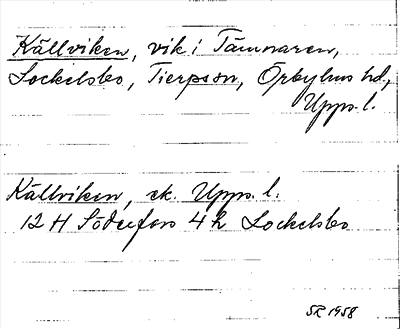 Källviken, vik i Tämnaren,
Lockelsbo, Tierpssn, Örbyhus hd,
Upps. l.
Källviken, ek. Upps. l.
12 H Söderfors 4 h Lockelsbo
SR 1958